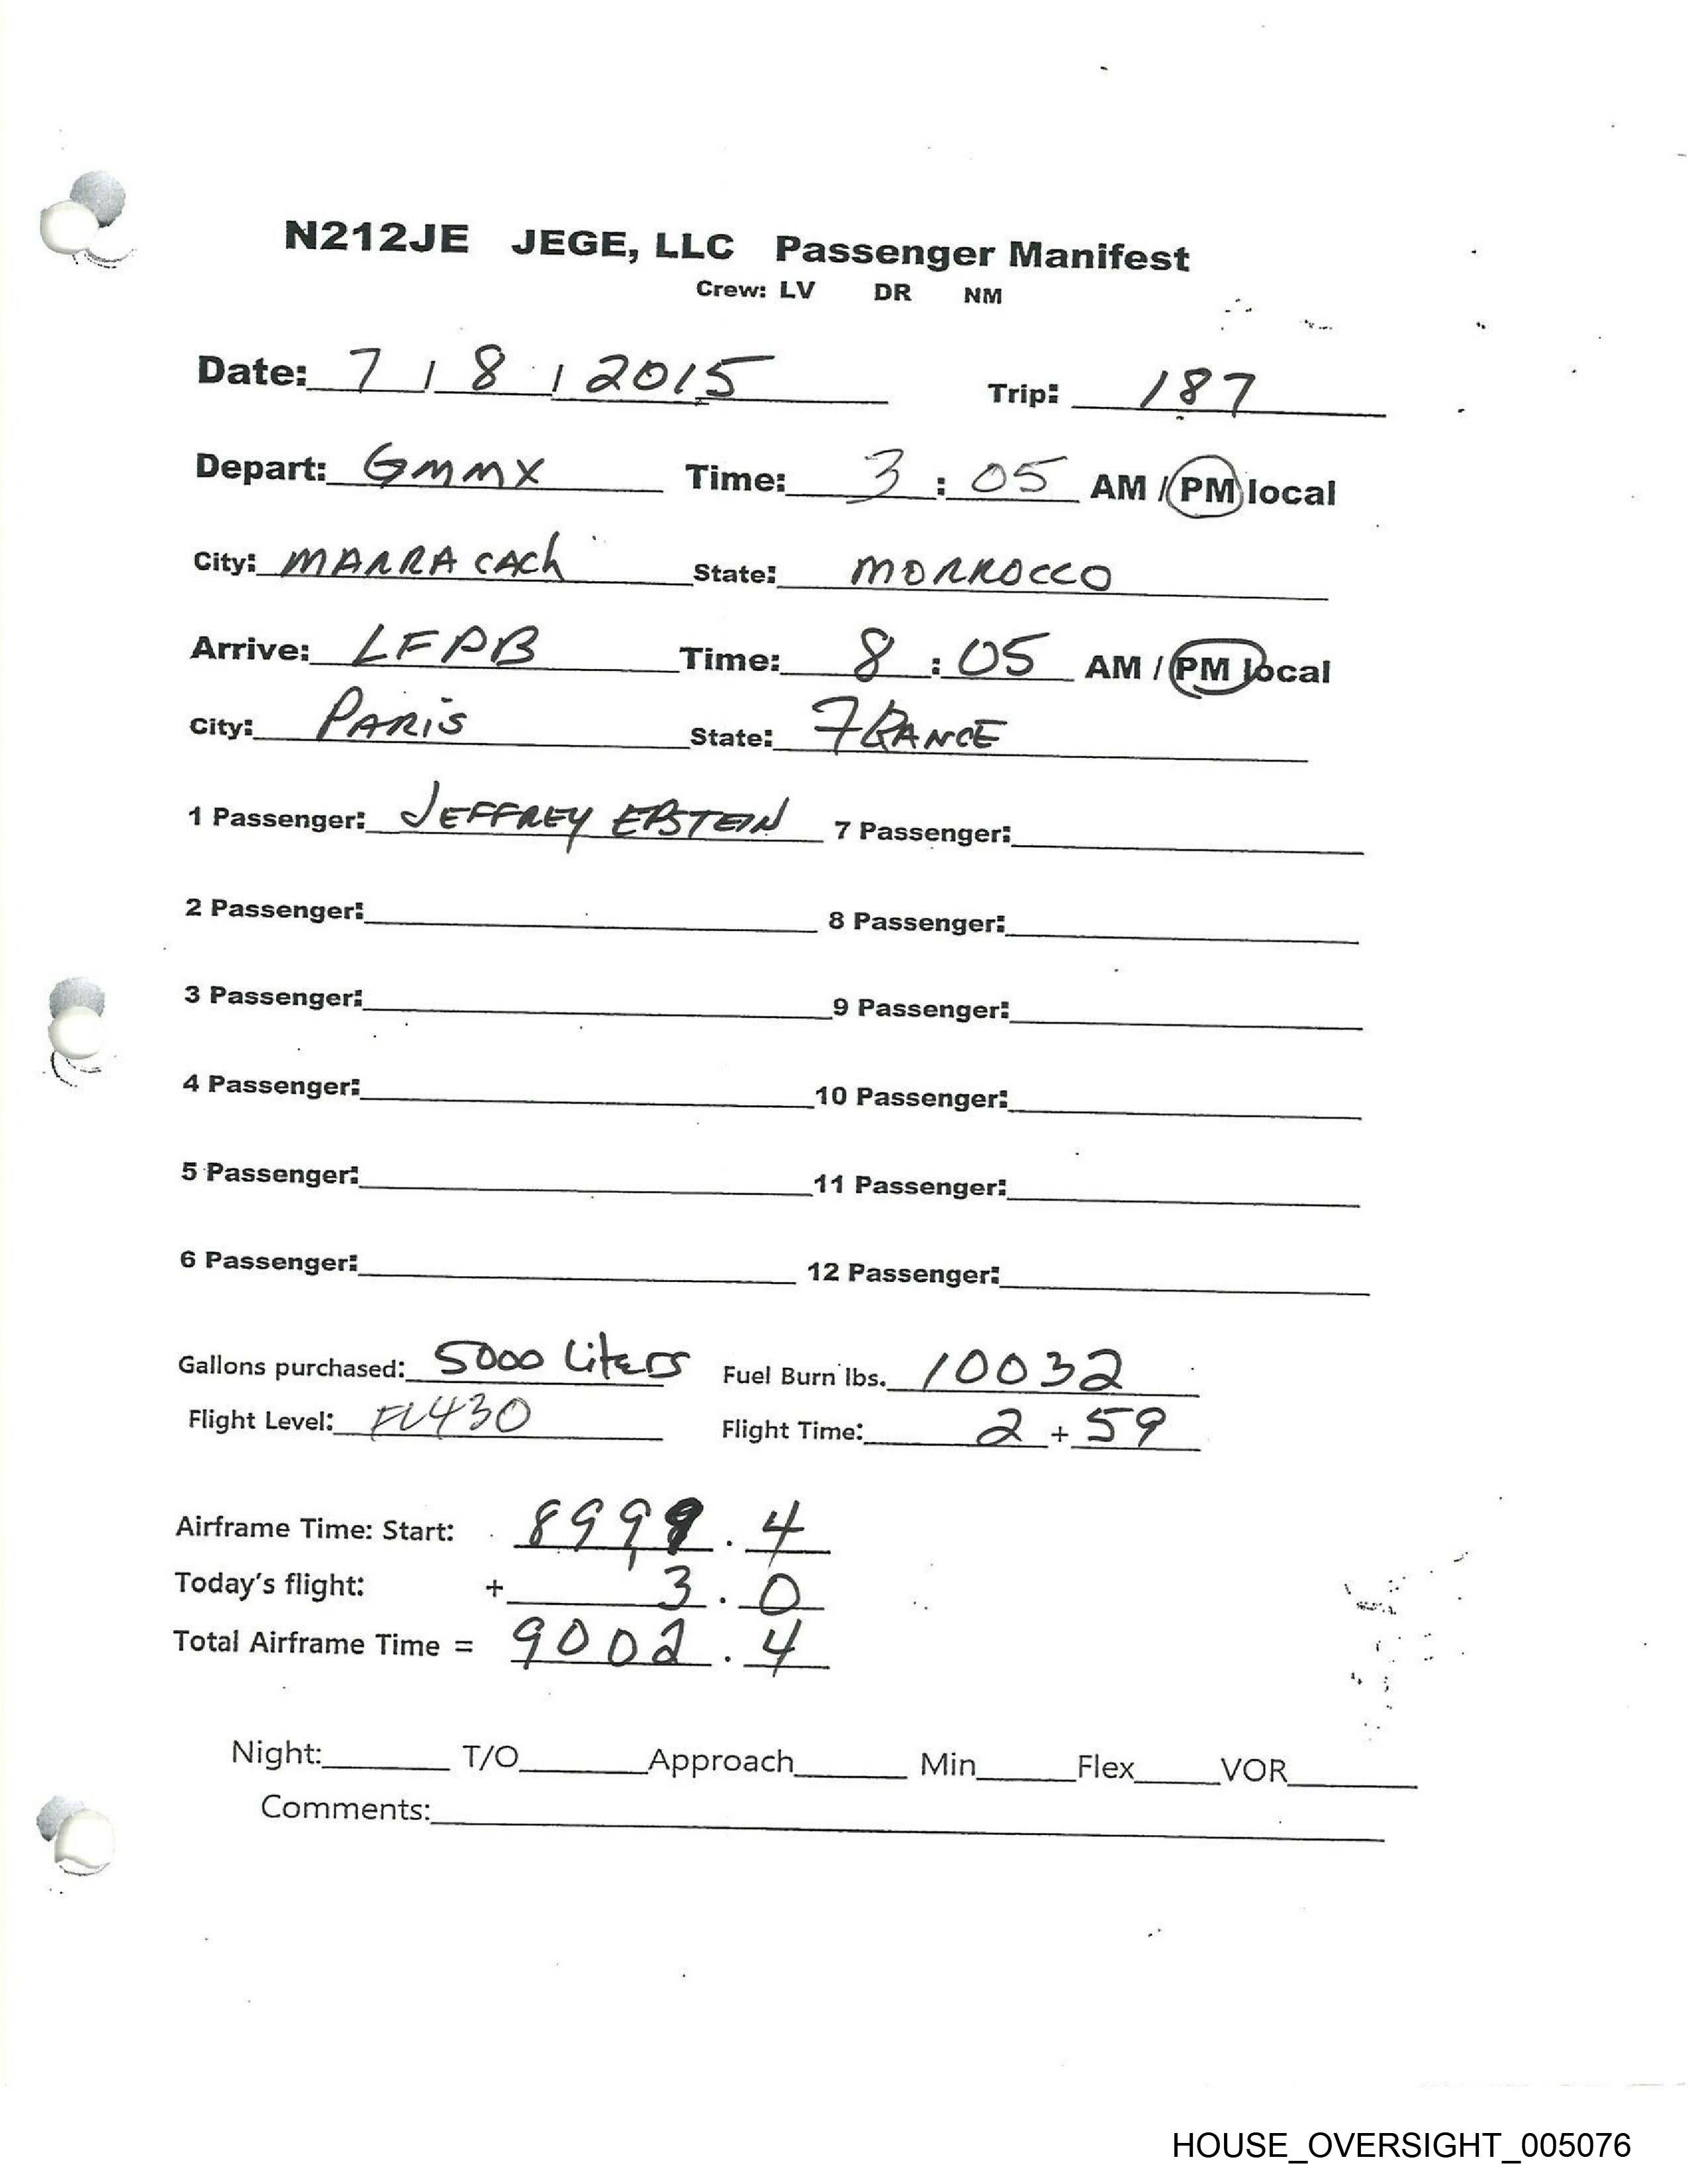 N212JE JEGE, LLC Passenger Manifest
Crew: LV DR NM
Date: 7 / 8 / 2015 Trip: 187
Depart: GMMX Time: 3 : 05 AM / PM local
City: MARRACACh State: MORROCCO
Arrive: LFPB Time: 8 : 05 AM / PM local
City: PARIS State: FRANCE
1 Passenger: JEFFREY EPSTEIN 7 Passenger:
2 Passenger: 8 Passenger:
3 Passenger: 9 Passenger:
4 Passenger: 10 Passenger:
5 Passenger: 11 Passenger:
6 Passenger: 12 Passenger:
Gallons purchased: 5000 Liters Fuel Burn lbs. 10032
Flight Level: FL430 Flight Time: 2 + 59
Airframe Time: Start: 8999 . 4
Today's flight: + 3 . 0
Total Airframe Time = 9002 . 4
Night: T/O Approach Min Flex VOR
Comments:
HOUSE_OVERSIGHT_005076